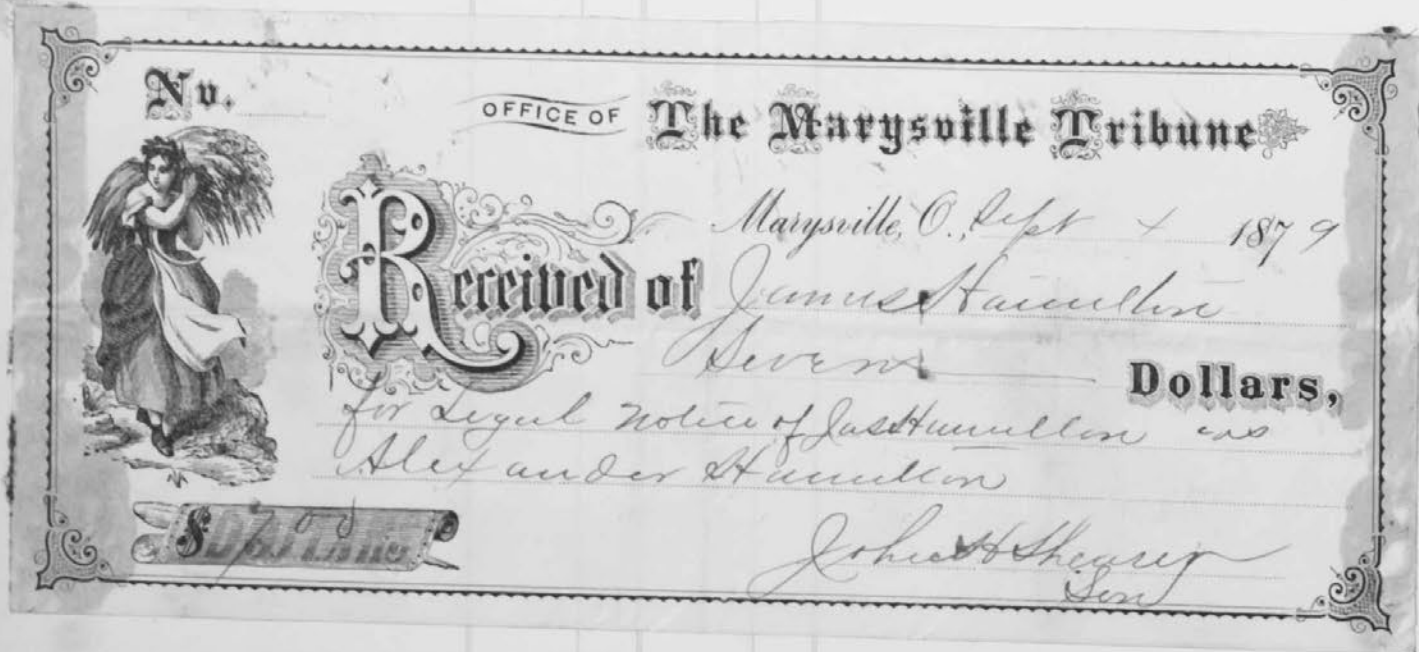 No.
OFFICE OF The Marysville Tribune
Marysville, O., Sept 4 1879
Received of James Hamilton
Seven Dollars,
for Legal Notice of Jas Hamilton vs
Alexander Hamilton
$ 7.00
John H Shearer
Son